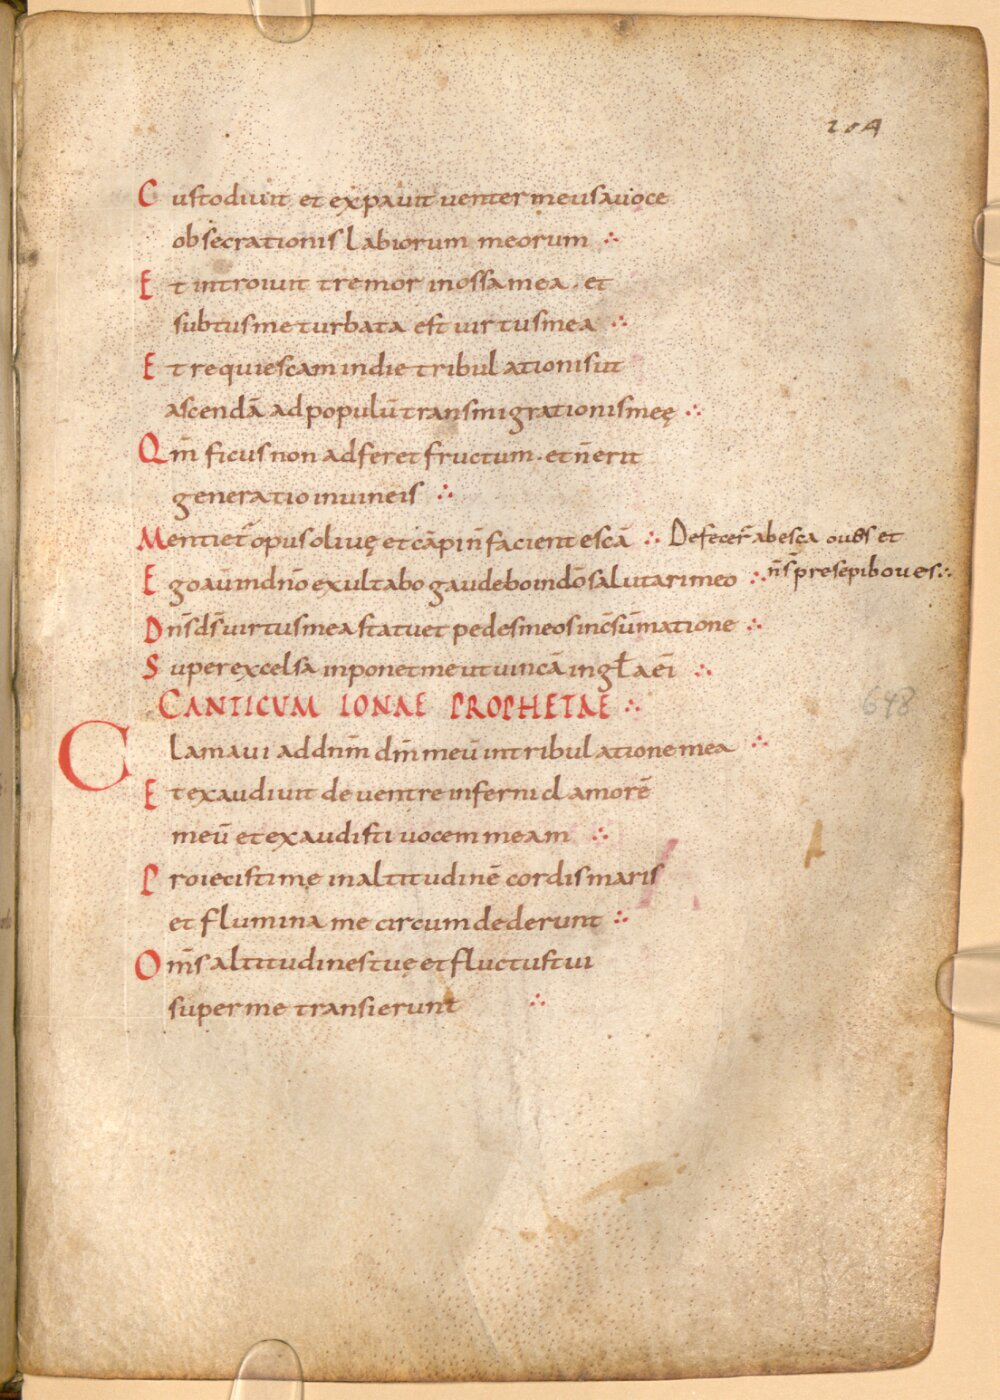 204
Custodiuit et expauit uenter meus a uoce
obsecrationis labiorum meorum ∴
Et introiuit tremor in ossa mea · et
subtus me turbata est uirtus mea ∴
Et requiescam in die tribulationis ut
ascendā ad populū transmigrationis meę ∴
Qm̄ ficus non adferet fructum · et n̄ erit
generatio in uineis ∴
Mentiet̄ opus oliuę et cāpi n̄ facient escā ∴ Defecer̄ ab esca oues et
Ego aū in dn̄o exultabo gaudebo in dō salutari meo ∴ n̄ s̄ presepibo ues ∴
Dn̄s ds̄ uirtus mea statuet pedes meos in cs̄ūmatione ∴
Super excelsa inponet me ut uincā in gła ei ∴
CANTICUM IONAE PROPHETAE ∴
Clamaui ad dnm̄ dm̄ meū in tribulatione mea ∴
Et exaudiuit de uentre inferni clamorē
meū et exaudisti uocem meam ∴
Proiecisti me in altitudinē cordis maris
et flumina me circumdederunt ∴
Om̄s altitudines tuę et fluctus tui
super me transierunt ∴
648